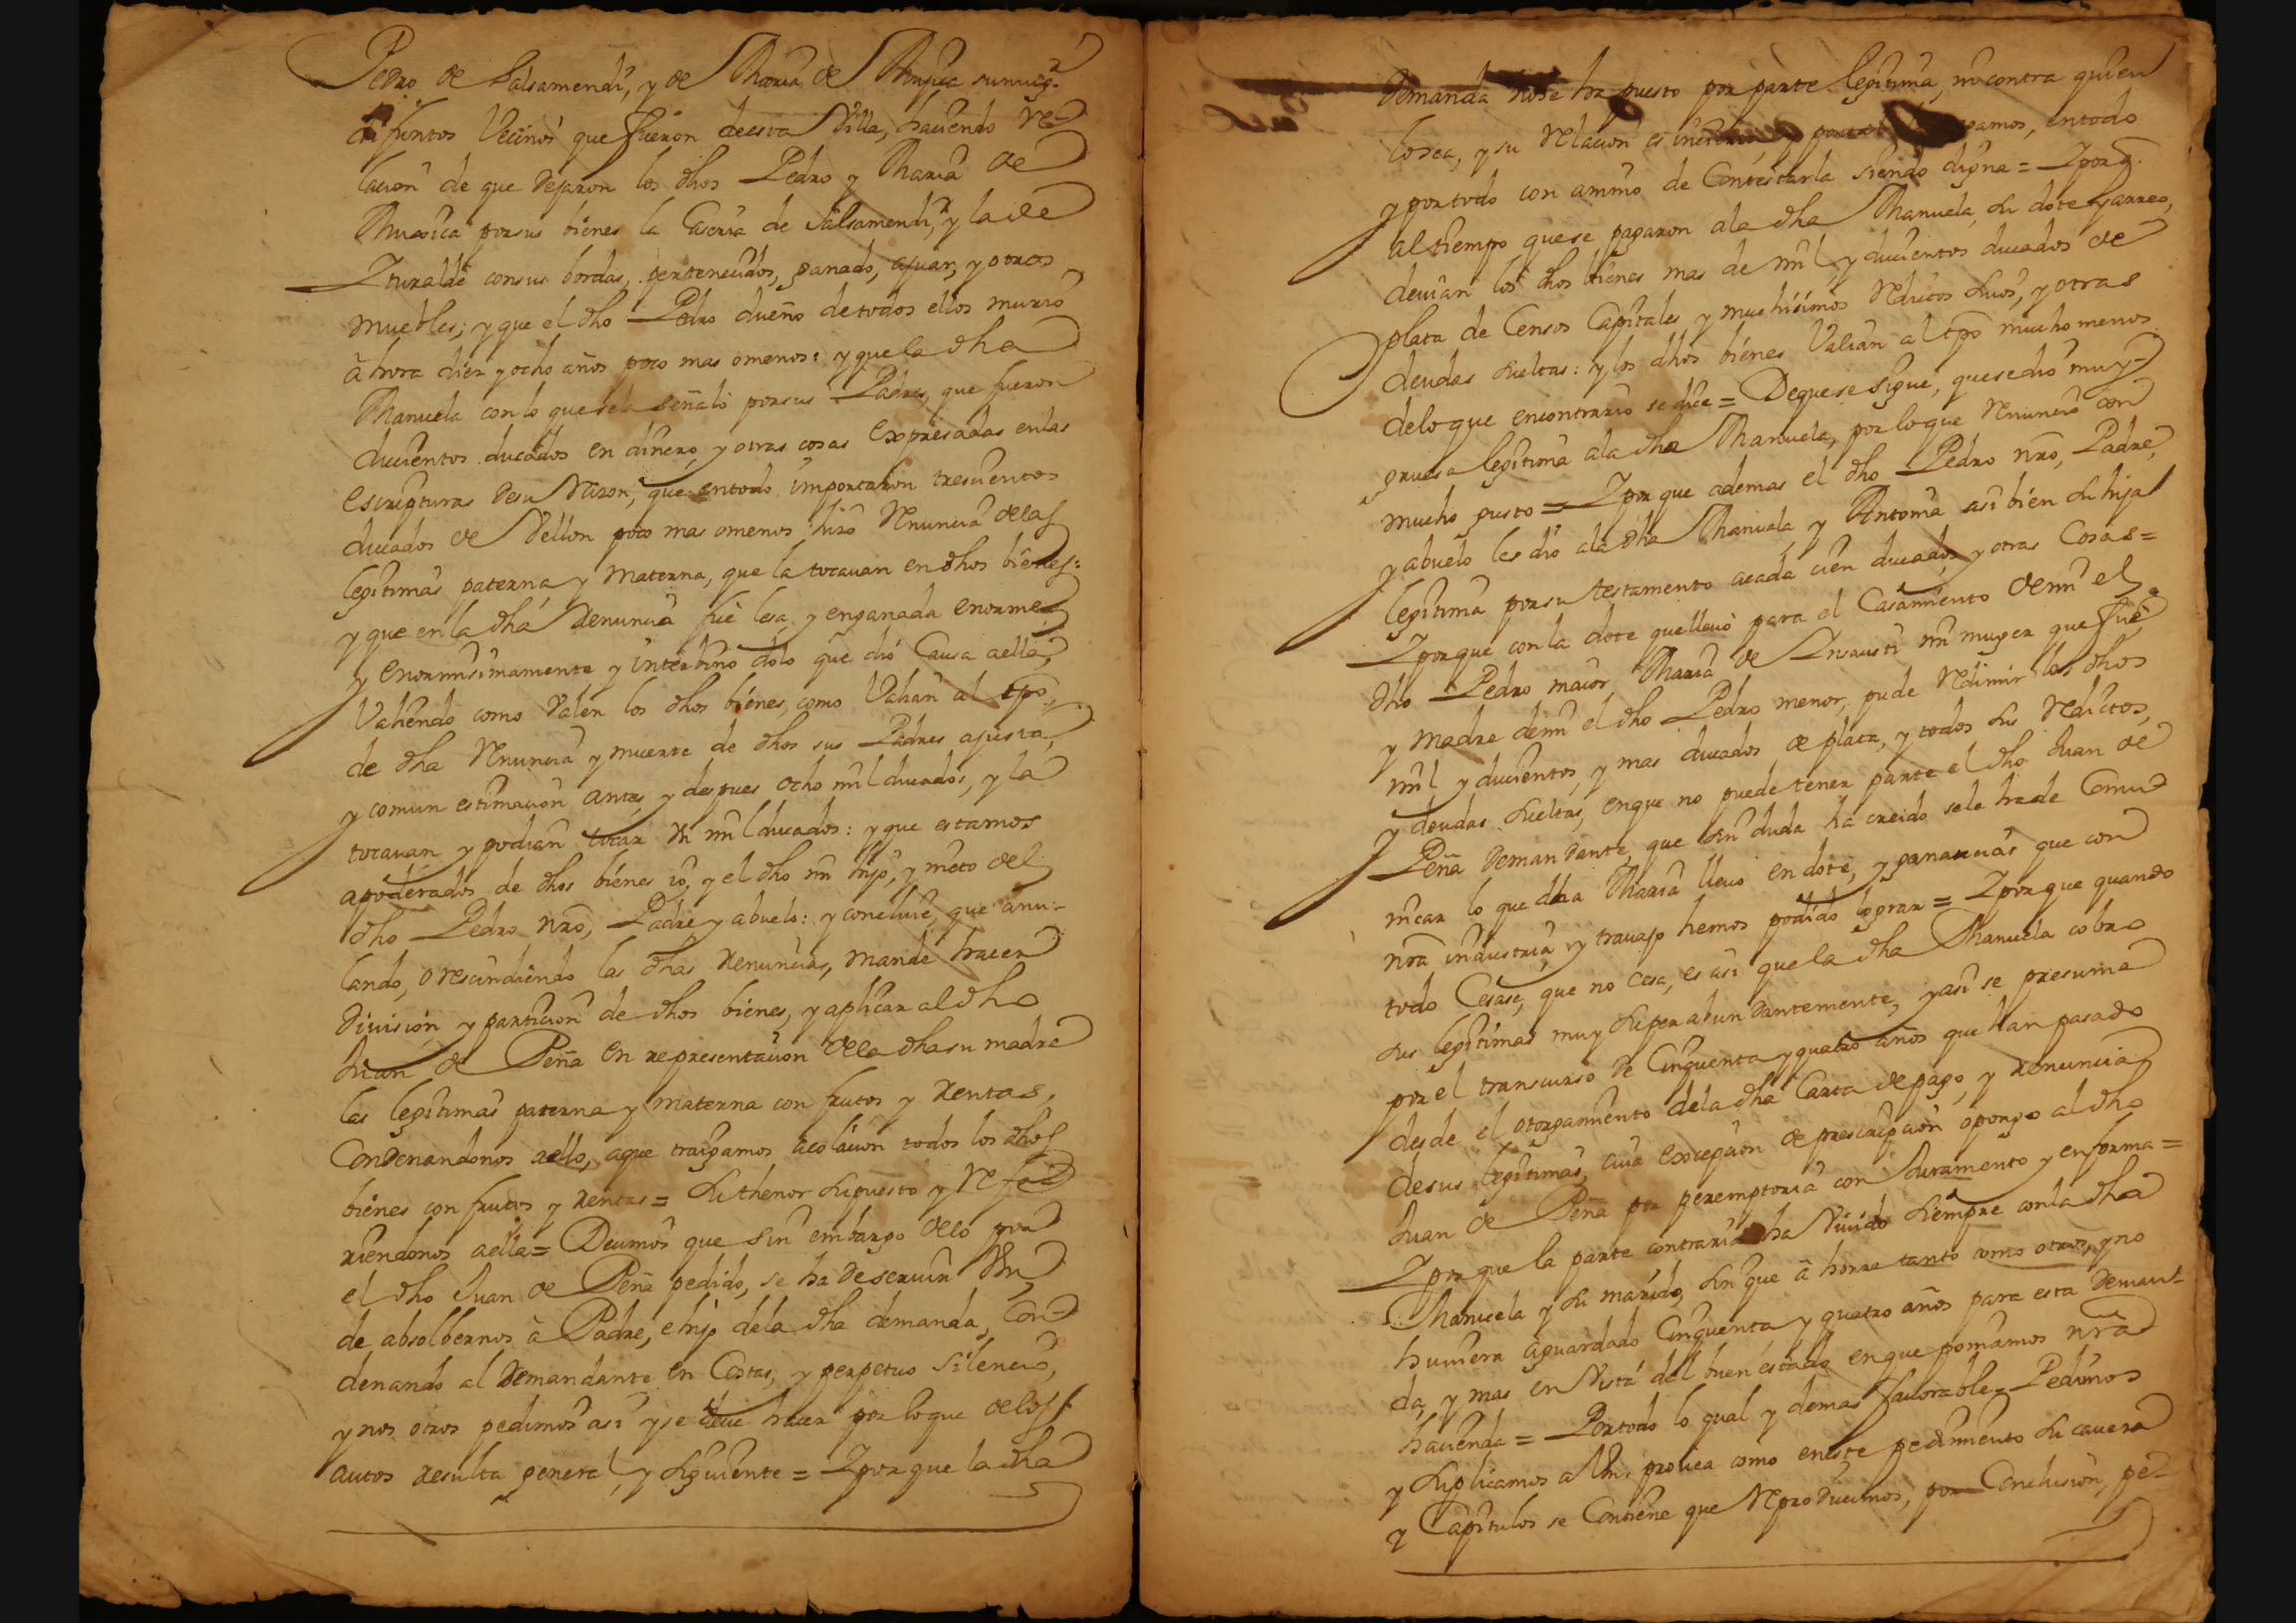 Pedro de Salsamendi, y de Maria de Muxica su muger
difuntos Vecinos que fueron de esta Villa, haciendo re-
lacion de que dejaron los dhos Pedro y Maria de
Muxica por sus bienes la Caseria de Salsamendi, y la de
Yturalde con sus bordas, pertenecidos, ganado, ajuar, y otros
muebles; y que el dho Pedro dueño de todos ellos murió
ahora diez y ocho años poco mas omenos: y que la dha
Manuela con lo que se la señaló por sus Padres, que fueron
ducientos ducados en dinero, y otras cosas expresadas en las
escripturas de su razon, que entodo importaron trescientos
ducados de Vellon poco mas omenos hizo renuncia de las
legitimas paterna y materna, que la tocauan en dhos bienes:
y que en la dha renuncia fué lesa, y enganada enorme,
y enormisimamente y interbino dolo que dió Causa aella,
Valiendo como Valen los dhos bienes, como Valian al tpo,
de dha renuncia y muerte de dhos sus Padres ajusta,
y comun estimacion antes y despues ocho mil ducados, y la
tocauan y podian tocar mil ducados: y que estamos
apoderados de dhos bienes io, y el dho mi hijo, y nieto del
dho Pedro nro, Padre y abuelo: y concluie, que anu-
lando, o rescindiendo las dhas renuncias, mande hacer
Division y particion de dhos bienes, y aplicar al dho
Juan de Peña en representacion dela dha su madre
las legitimas paterna y materna con frutos y rentas,
Condenandonos aello, aque traigamos acolacion todos los dhos
bienes con frutos y rentas = Suthenor supuesto y refi-
riendonos aella = Decimos que sin embargo delo por
el dho Juan de Peña pedido, se ha de servir Vm,
de absolbernos à Padre, e hijo dela dha demanda, Con-
denando al Demandante en Costas, y perpetuo silencio,
y nos otros pedimos asi y se deue hacer por lo que delos
autos resulta general, y siguiente = Y porque la dha
demanda nose ha puesto por parte legitima, ni contra quien
lo sea, y su relacion es incierta, y entodo
y por todo con animo de Contestarla siendo digna = Y porq.
al tiempo que se pagaron ala dha Manuela, su dote y arreo,
deuian los dhos bienes mas de mil y ducientos ducados de
plata de Censos Capitales y muchisimos reditos suos, y otras
deudas sueltas: y los dhos bienes Valian al tpo mucho menos
delo que encontrario se dice = Deque se sigue, que se dió muy
gruesa legitima ala dha Manuela, por lo que renunció con
mucho gusto = Y porque ademas el dho Pedro nro, Padre,
y abuelo les dió ala dha Manuela y Antonia asi bien su hija
legitima por su testamento acada cien ducados, y otras Cosas =
Y porque con la dote que lleuó para el Casamiento de mi el
dho Pedro maior Maria de Insausti mi muger que fué
y madre demi el dho Pedro menor, pude redimir los dhos
mil y ducientos, y mas ducados de plata, y todos sus reditos,
y deudas sueltas, enque no puede tener parte el dho Juan de
Peña Demandante, que sin duda ha creido se le ha de Comu-
nicar lo que dha Maria lleuó en dote, y ganancias que con
nra industria, y trauajo hemos podido lograr = Y porque quando
todo Cesase, que no cesa, es asi que la dha Manuela cobró
sus legitimas muy superabundantemente, y asi se presume
por el transcurso de Cinquenta y quatro años que han pasado
desde el otorgamiento dela dha Carta de pago, y renuncia
de sus legitimas, cuia excepcion de prescripcion opongo al dho
Juan de Peña por peremptoria con Juramento y enforma =
Y porque la parte contraria ha Viuido siempre con la dha
Manuela y su marido, sin que à horre tanto como otros, y no
huuiera aguardado Cinquenta y quatro años para esta deman-
da, y mas en Vista del buen estado enque poniamos nra
hacienda = Por todo lo qual y demas fauorable = Pedimos
y suplicamos a Vm, prouea como eneste pedimiento su cauera
y Capitulos se Contiene que reproducimos, por Conclusion, pe-